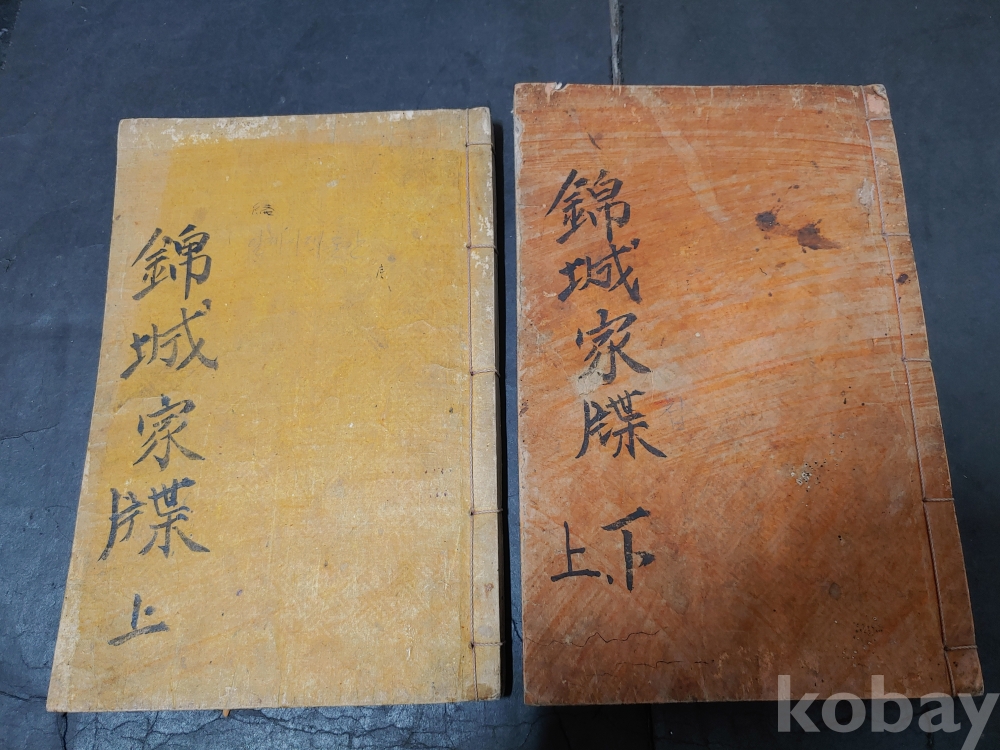 錦城家牒 上
錦城家牒 上下
kobay